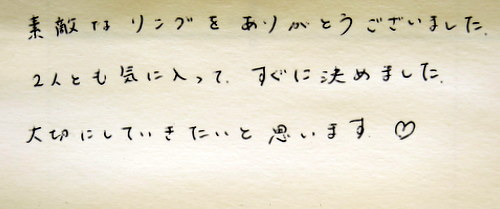 素敵なリングをありがとうございました.
2人とも気に入って、すぐに決めました.
大切にしていきたいと思います ♡